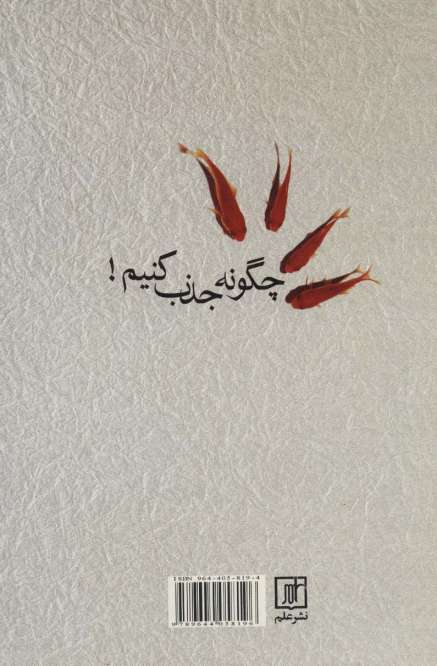 چگونه جذب کنیم !
ISBN 964-405-819-4
9789644058196
نشر علم